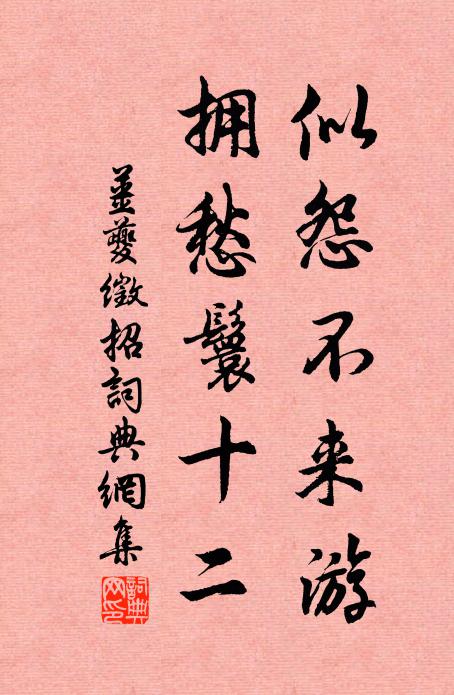 似怨不来游
拥愁鬟十二
姜夔徵招詞典網集
詞典网印